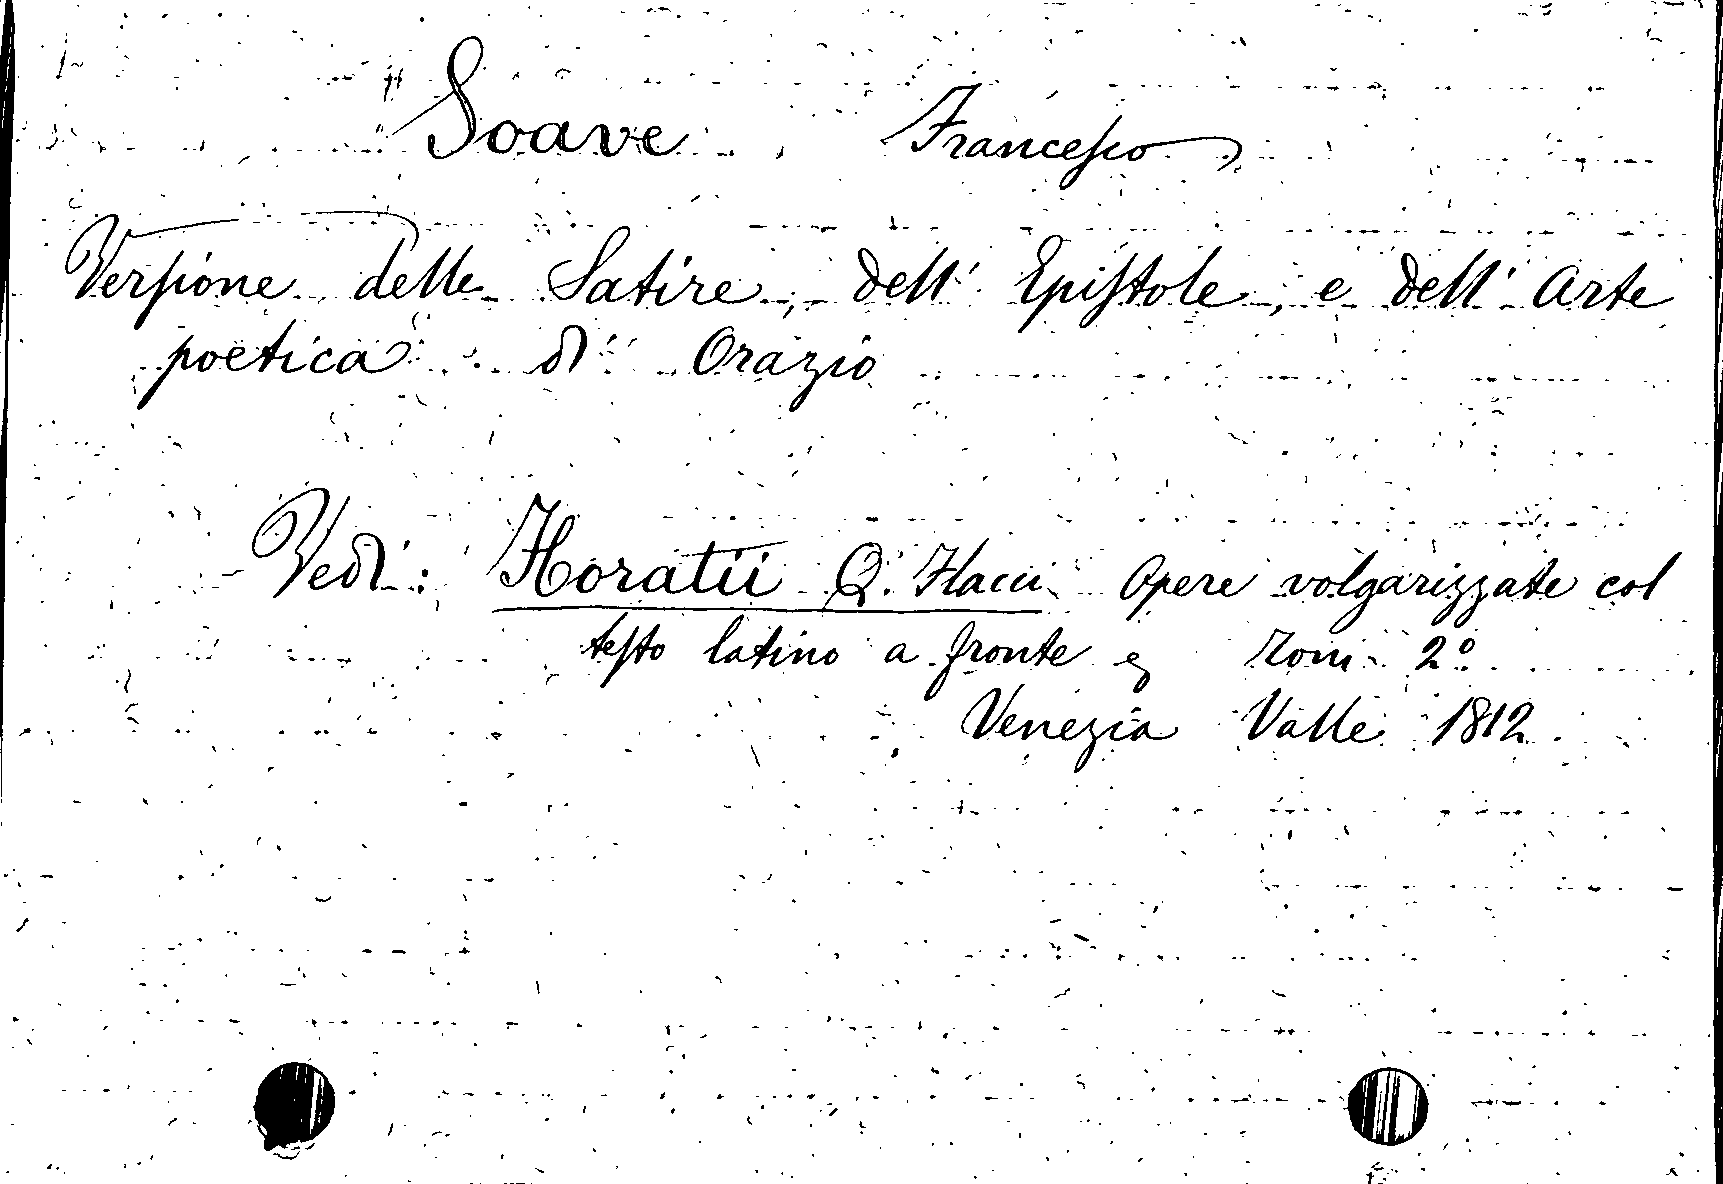 Soave Francesco
Versione delle Satire, dell' Epistole, e dell' Arte
poetica di Orazio
Vedi: Horatii Q. Flacci Opere volgarizzate col
testo latino a fronte Tomi 2°
Venezia Valle 1812